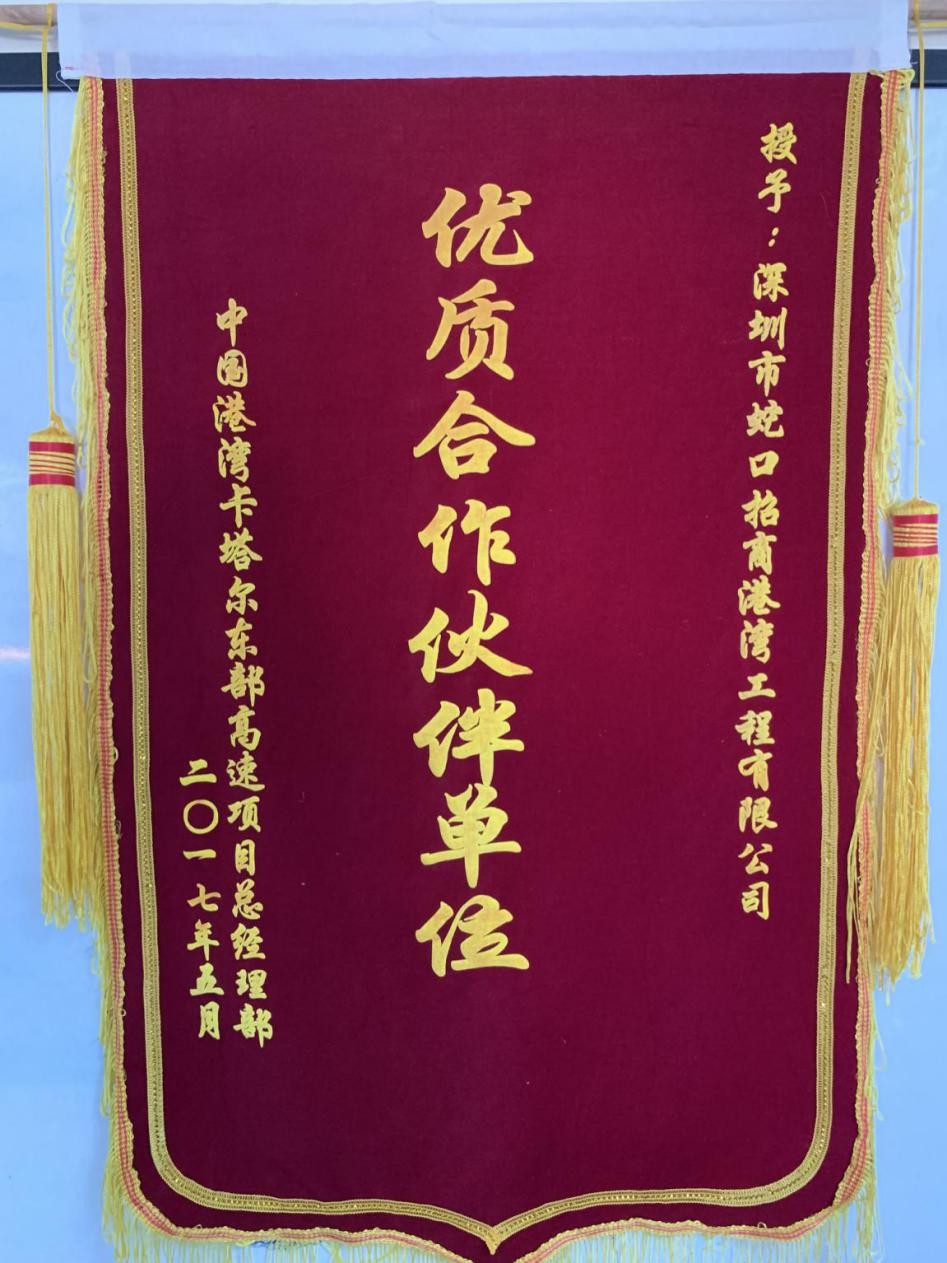 授予：深圳市蛇口招商港湾工程有限公司
优质合作伙伴单位
中国港湾卡塔尔东部高速项目总经理部
二〇一七年五月